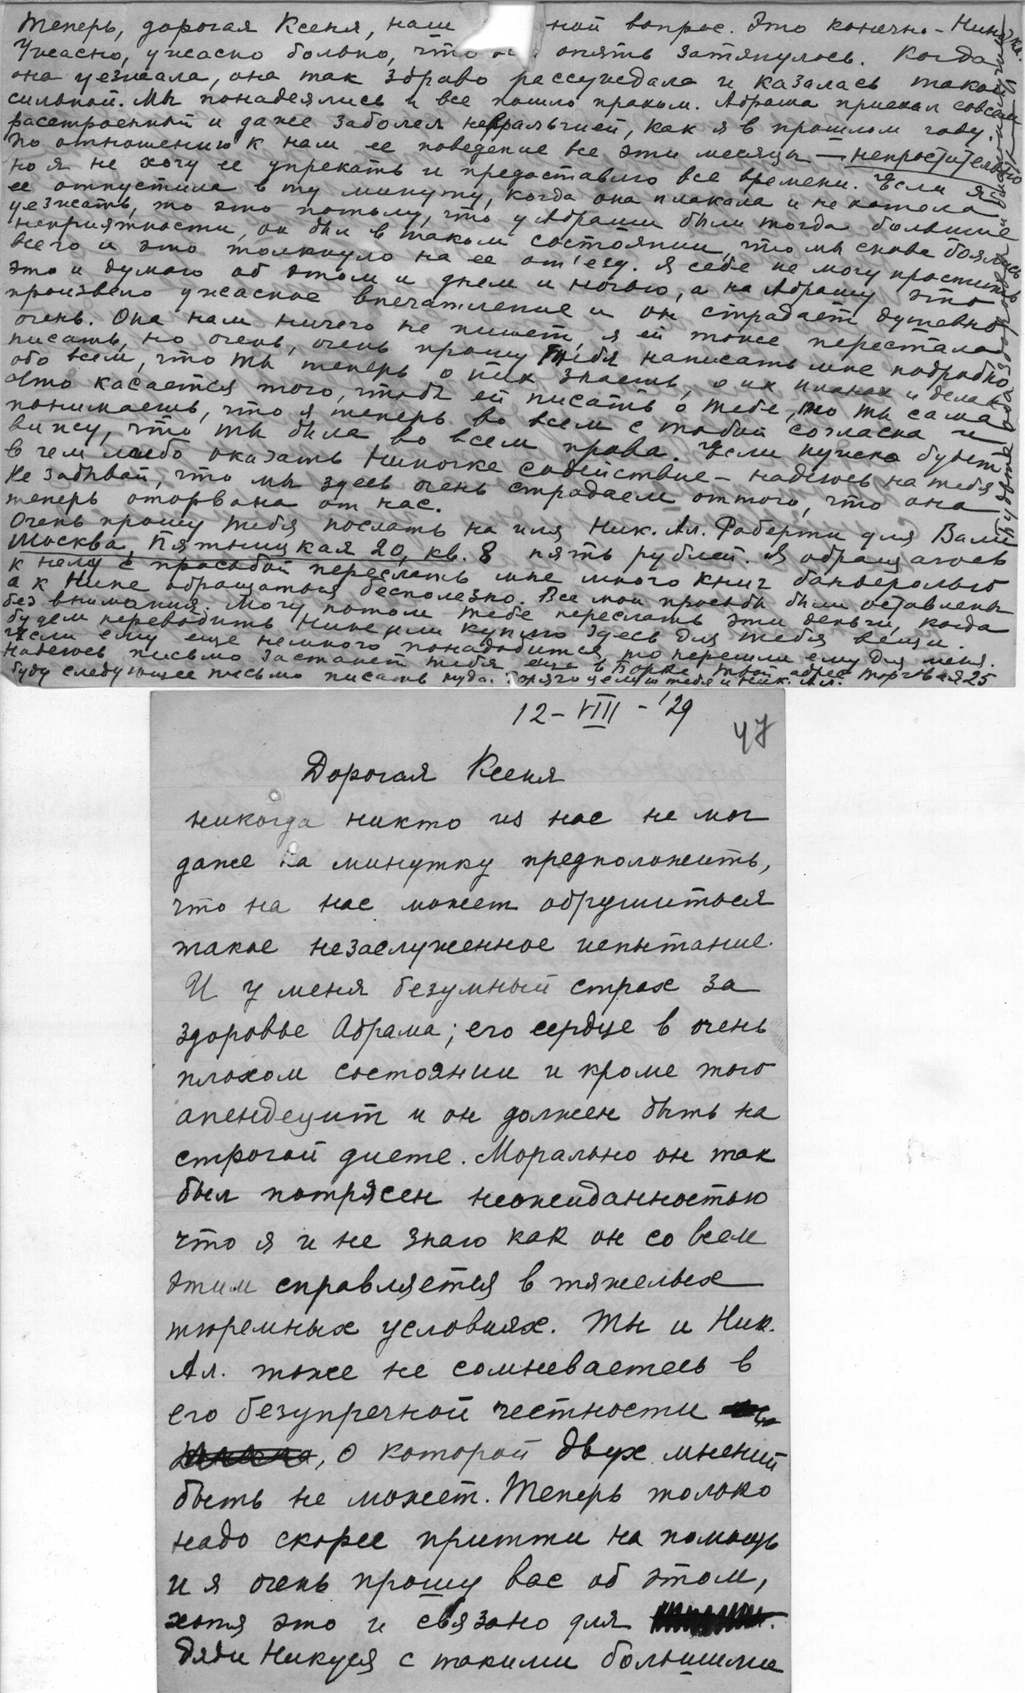 Теперь, дорогая Ксеня, наш ной вопрос. Это конечно – Ниночка.
Ужасно, ужасно больно, что опять затянулось. Когда
она уезжала, она так здраво рассуждала и казалась такой
сильной. Мы понадеялись и все пошло прахом. Абраша приехал совсем
расстроенный и даже заболел невральгией, как я в прошлом году.
По отношению к нам ее поведение все эти месяцы – непростительно
но я не хочу ее упрекать и предоставлю все времени. Если я
ее отпустила в ту минуту, когда она плакала и не хотела
уезжать, то это потому, что у Абраши были тогда большие
неприятности, он был в таком состоянии, что мы снова боялись
всего и это толкнуло на ее от'езд. Я себе не могу простить
это и думаю об этом и днем и ночью, а на Абрашу это
произвело ужасное впечатление и он страдает душевно
очень. Она нам ничего не пишет, я ей тоже перестала
писать, но очень, очень прошу тебя написать мне подробно
обо всем, что ты теперь о них знаешь, о их планах и делах
Что касается того, чтобы ей писать о тебе, то ты сама
понимаешь, что я теперь во всем с тобой согласна и
вижу, что ты была во всем права. Если нужно будет
в чем либо оказать Ниночке содействие – надеюсь на тебя
Не забывай, что мы здесь очень страдаем оттого, что она
теперь оторвана от нас.
Очень прошу тебя послать на имя Ник. Ал. Фаберти для Вали
Москва, Пятницкая 20, кв. 8 пять рублей. Я обращаюсь
к нему с просьбой переслать мне много книг бандеролью
а к Нине обращаться бесполезно. Все мои просьбы были оставлены
без внимания. Могу потом тебе переслать эти деньги, когда
будем переводить Нине или куплю здесь для тебя вещи.
Если ему еще немного понадобится, то перешли ему для меня.
Надеюсь письмо застанет тебя еще в твой адрес Торговая 25
Буду следующее письмо писать туда. Горячо целую тебя и Ник. Ал.
12 – VIII – '29
47
Дорогая Ксеня
никогда никто из нас не мог
даже на минутку предположить,
что на нас может обрушиться
такое незаслуженное испытание.
И у меня безумный страх за
здоровье Абрама; его сердце в очень
плохом состоянии и кроме того
апендецит и он должен быть на
строгой диете. Морально он так
был потрясен неожиданностью
что я и не знаю как он со всем
этим справляется в тяжелых
тюремных условиях. Ты и Ник.
Ал. тоже не сомневаетесь в
его безупречной честности
, о которой двух мнений
быть не может. Теперь только
надо скорее притти на помощь
и я очень прошу вас об этом,
хотя это и связано для
дяди Никуся с такими большими